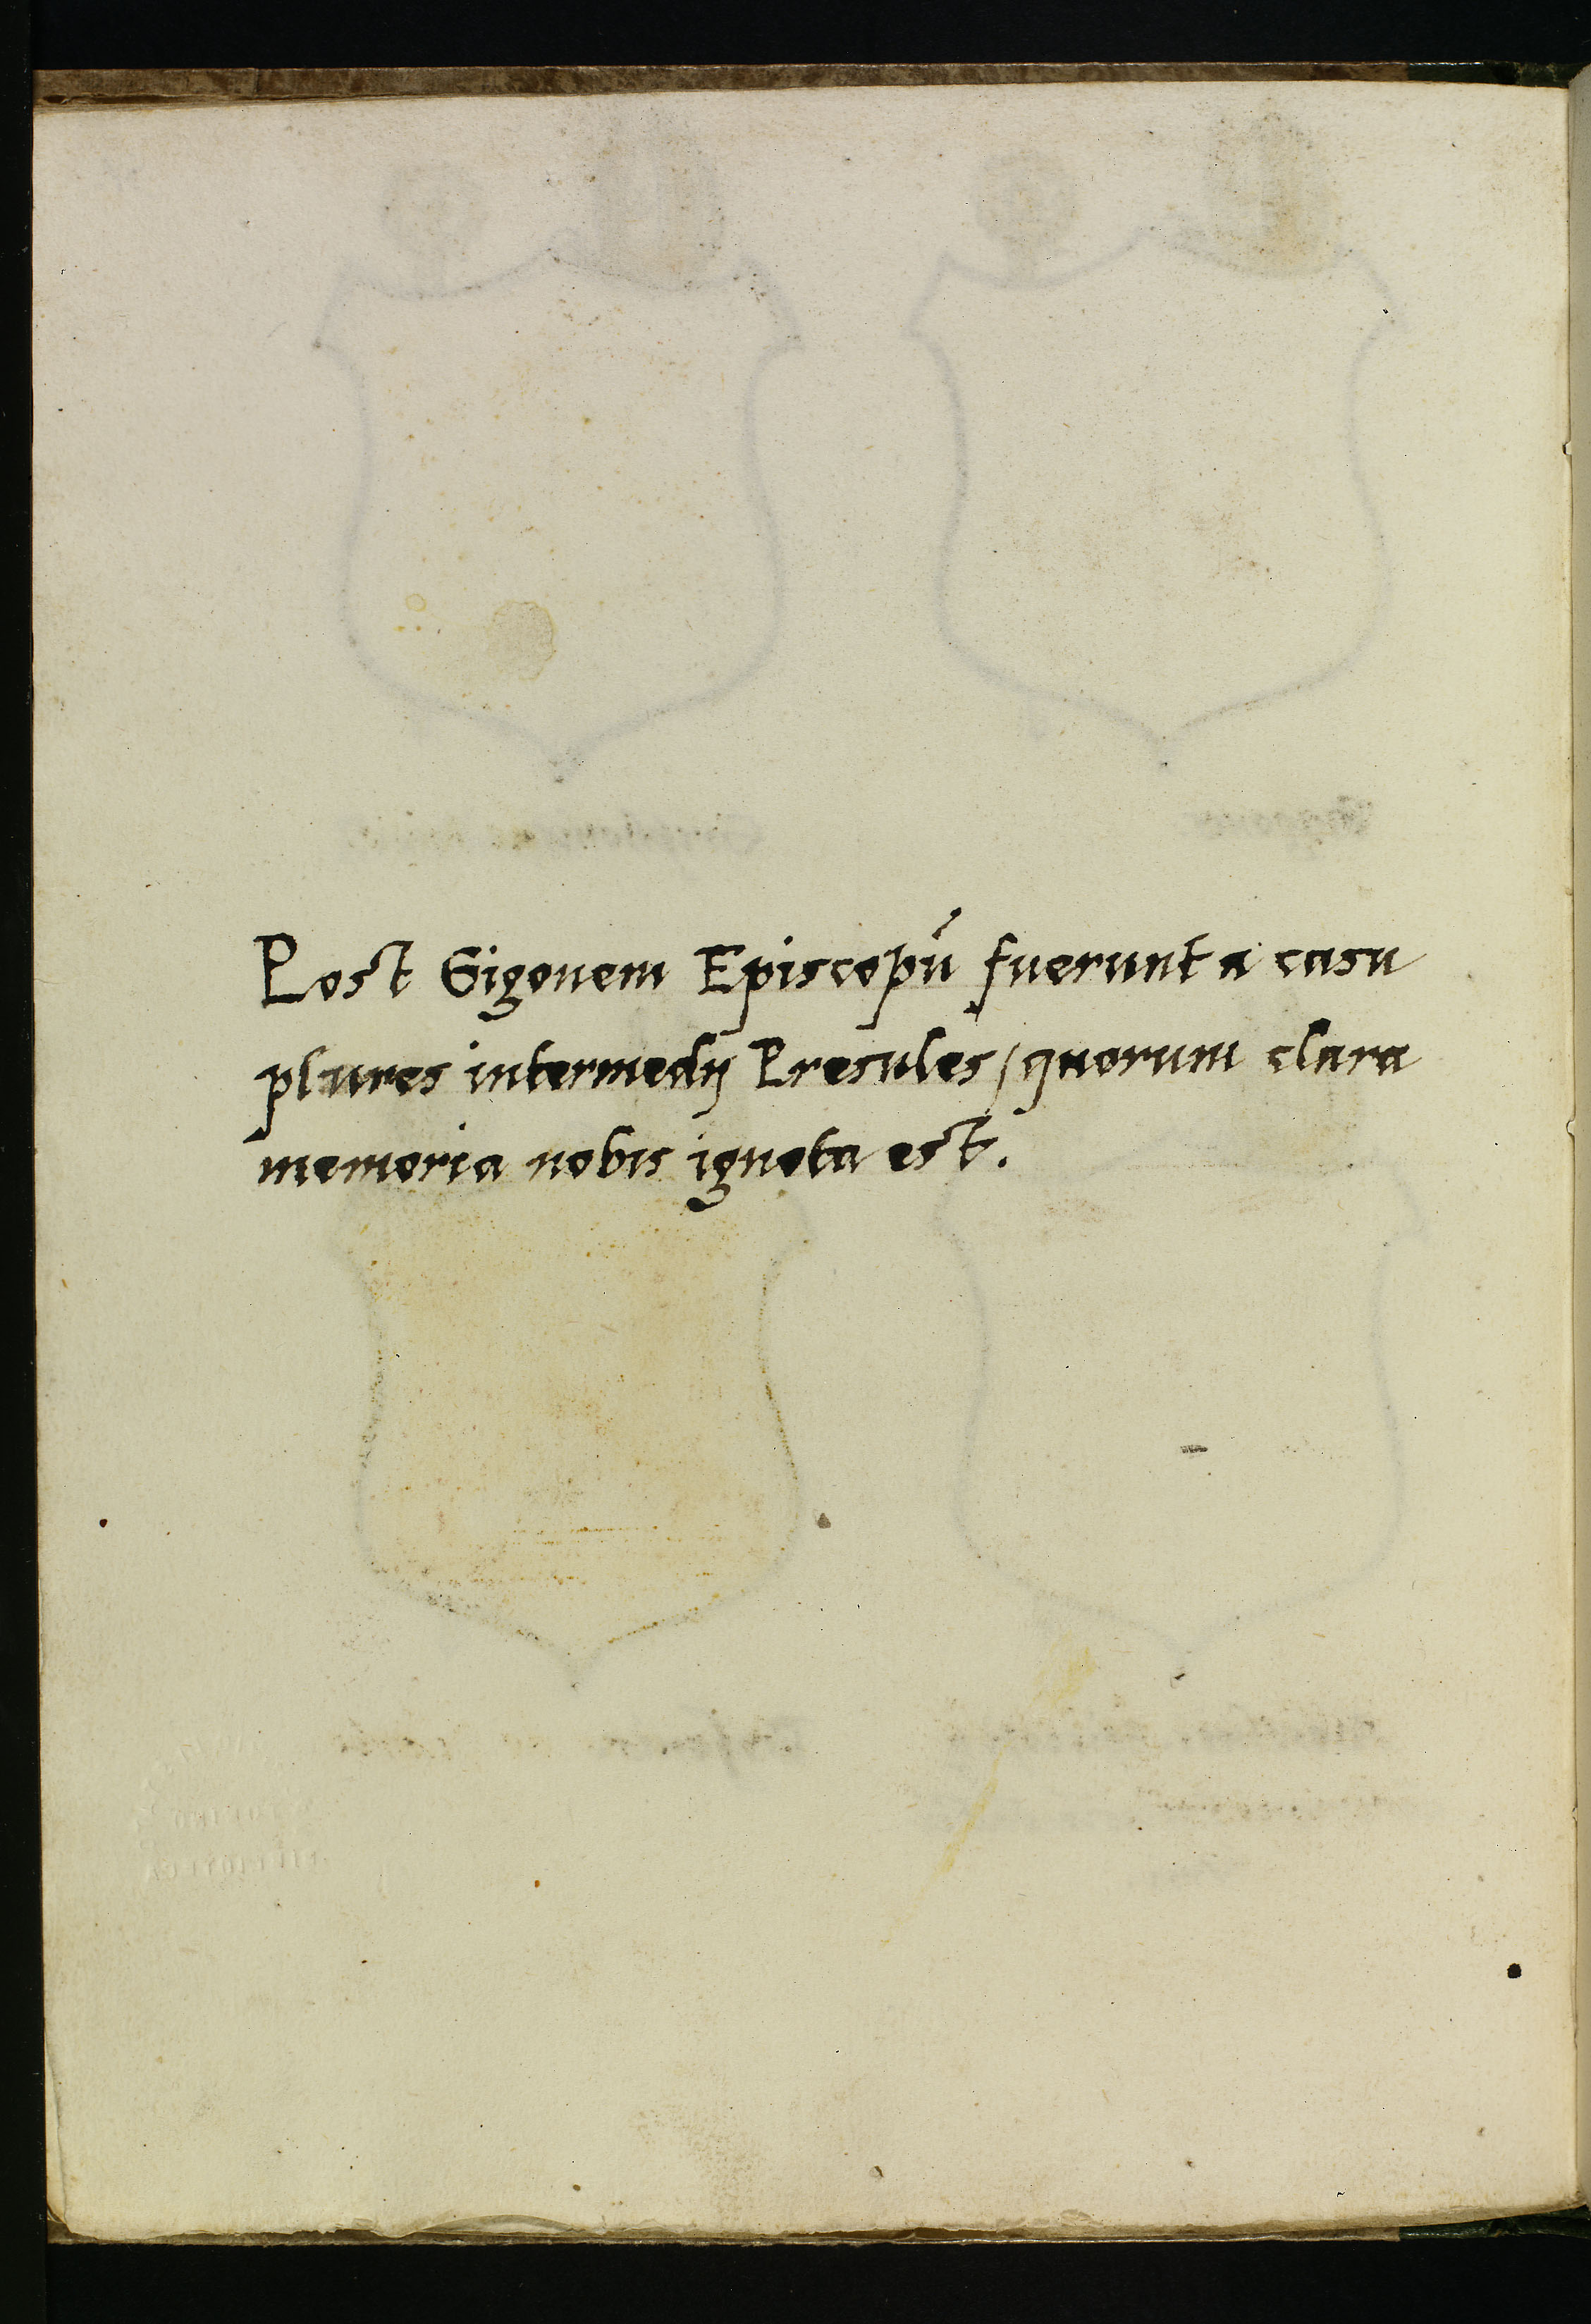 Post Gigonem Episcopū fuerunt a casu
plures intermedij Presules / quorum clara
memoria nobis ignota est.